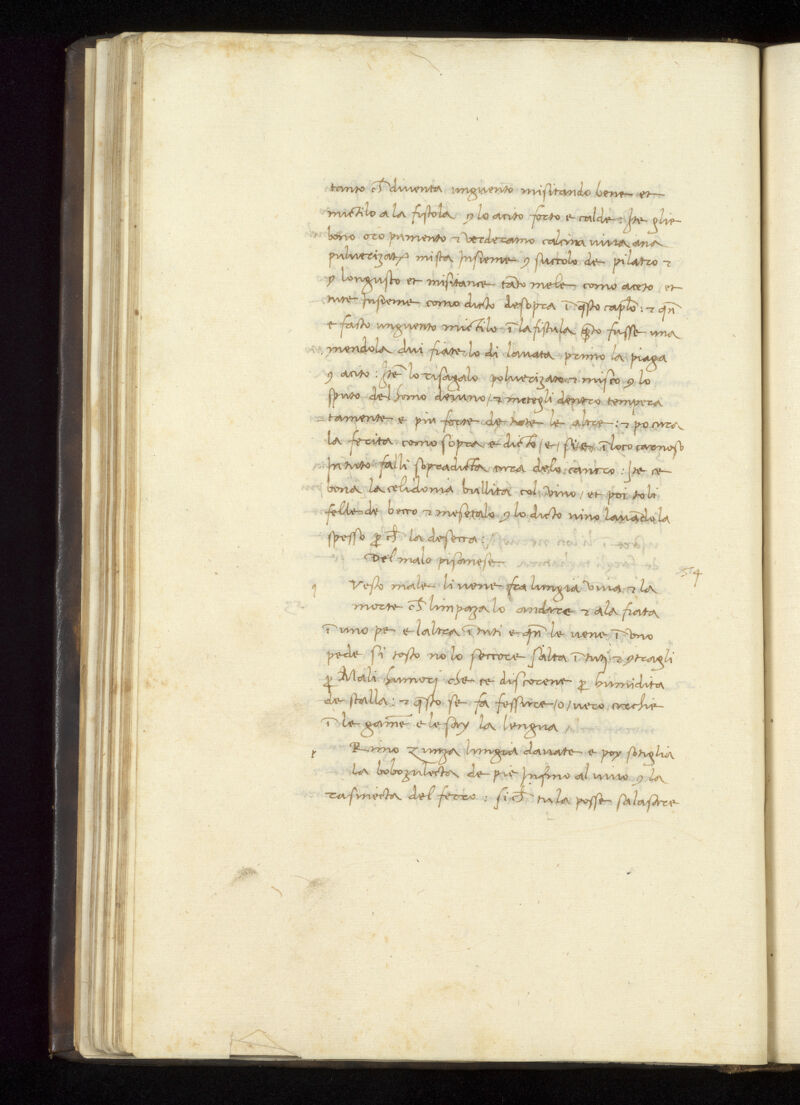 tanto ch̄ diventa unguento misitando bene et
mictilo a la fistola ꝯ lo acito forto e calde: Itē glie
bono oro pumento ⁊ verderamo calcina viva ana
pulverizat mista insieme ꝯ succolo de pilatro ⁊
ꝯ longusto et misitance tāto mele como aceto, et
tute insieme como dicto desopra ī q̄sto caplo: ⁊ qn̄
e facto unguento mictilo ī la fistula q̄sto fusse una
mendola dui fiate lo di lavata primo la piaga
ꝯ acito: Itē lo risagalo polverizato ⁊ misto ꝯ lo
sputo del homo deiuno, ⁊ mictegli dentro tempera
tamente e piu forte de tote le altre: ⁊ po cura
la ferita como sopra e dicto, e, si e ī loco carnoso
In tuto falli sopradicta cura delo cancro: Itē ce
bona la celidonia bullita col vino, et poi toli
felle de becco ⁊ mesetalo ꝯ lo dicto vino lavādola
spesso ꝑ ch̄ la desecca:
Del malo pisanese
54
q Vesto male li vene fra lungia viva ⁊ la
morte ch̄ limpaza lo andare ⁊ ala fiata
ī uno pe e laltra ī tuti e qn̄ le vene ī uno
pede, si tosto nō lo seccore salta ī tuti ⁊ ꝯtragli
ꝑ Mali humori che ce discorene ꝑ humidita
de stalla: ⁊ q̄sto se fa fessure, o, vero creche
ī le game e le say la lengua
p Rimo zunza lungia davate e poy sotiglia
la bobozulecta de pie Infino al vivo ꝯ la
rasinecta del ferro: si ch̄ tu la posse salasare